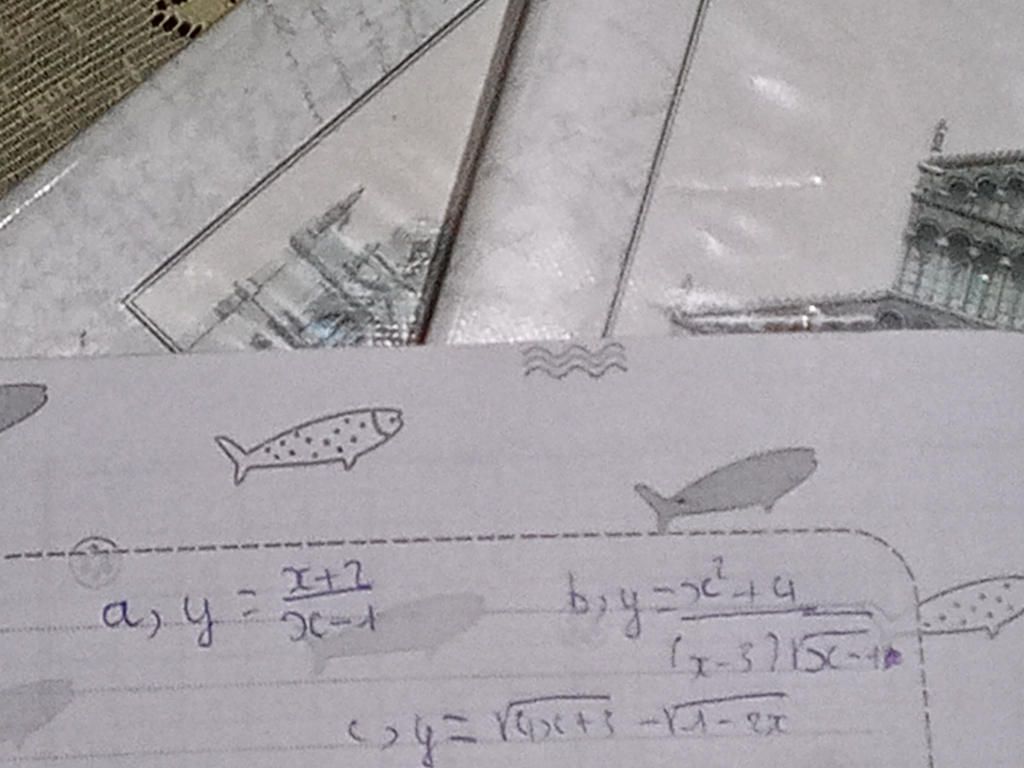 a, y = x+2/x-1 b, y = x²+4/(x-3)√x-1
c, y = √4x+3 - √1-2x